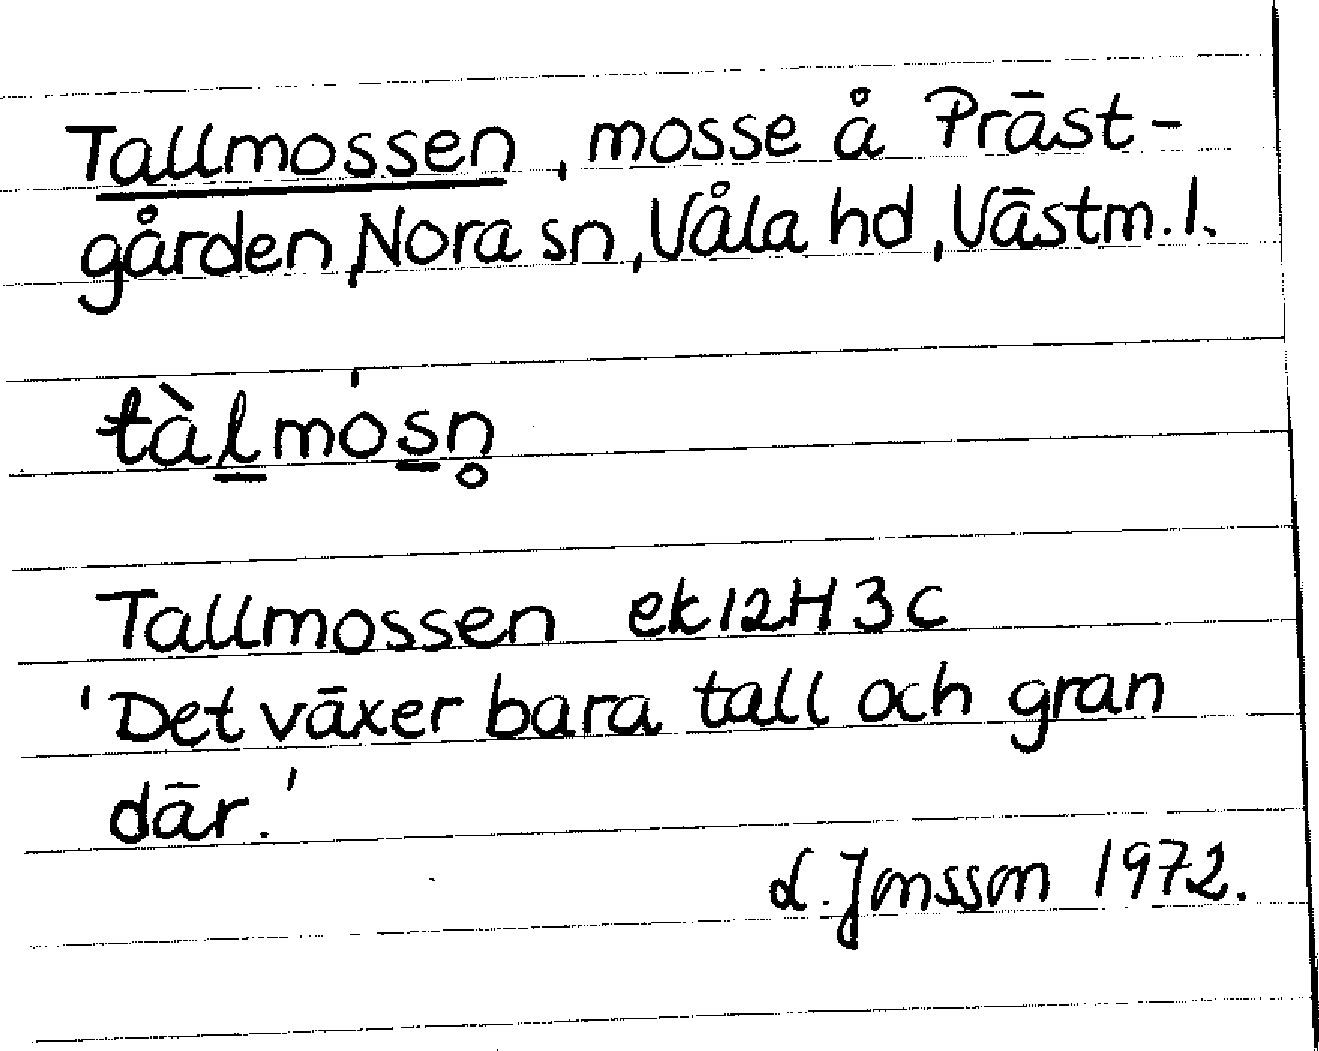 Tallmossen, mosse å Präst-
gården, Nora sn, Våla hd, Västm. l.
tàl̲mós̲n̥
Tallmossen ek 12H 3c
'Det växer bara tall och gran
där.'
L. Jonsson 1972.